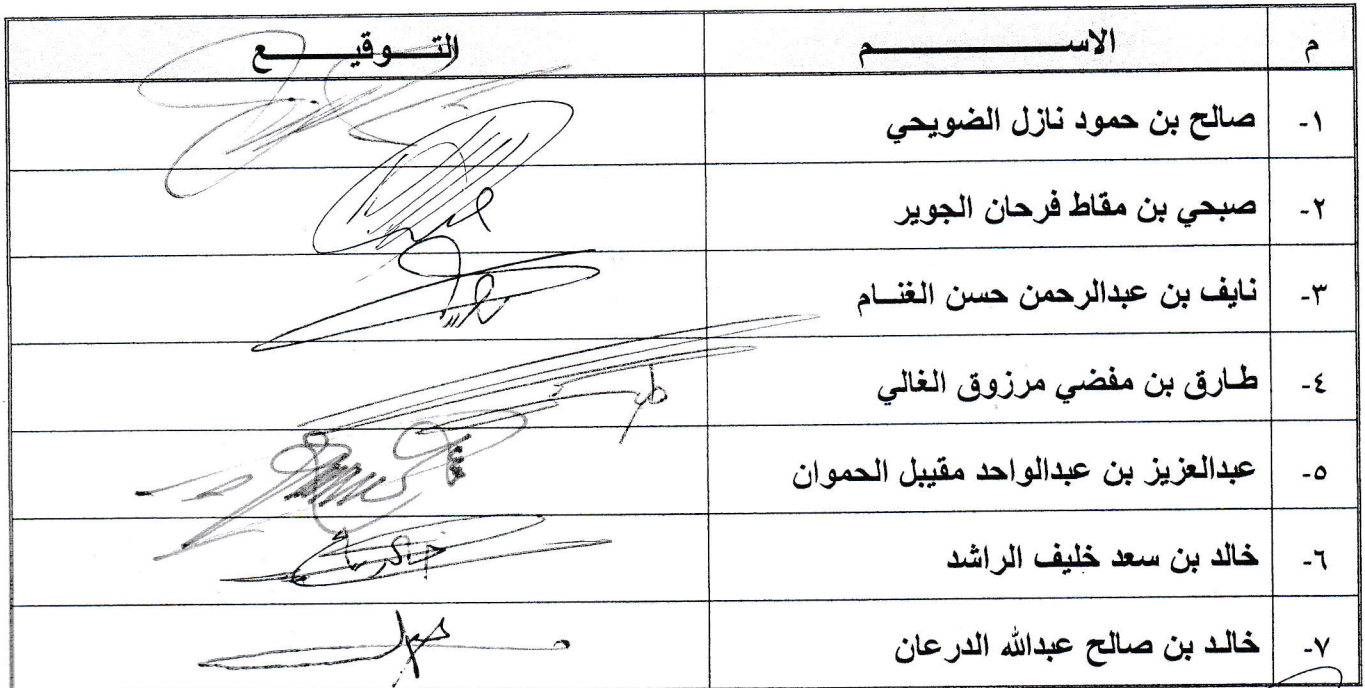 م الاســــــــم التـــوقيــــع
١- صالح بن حمود نازل الضويحي
٢- صبحي بن مقاط فرحان الجوير
٣- نايف بن عبدالرحمن حسن الغنــام
٤- طــارق بن مفضي مرزوق الغالي
٥- عبدالعزيز بن عبدالواحد مقيبل الحموان
٦- خالد بن سعد خليف الراشد
٧- خالــد بن صالح عبدالله الدرعان